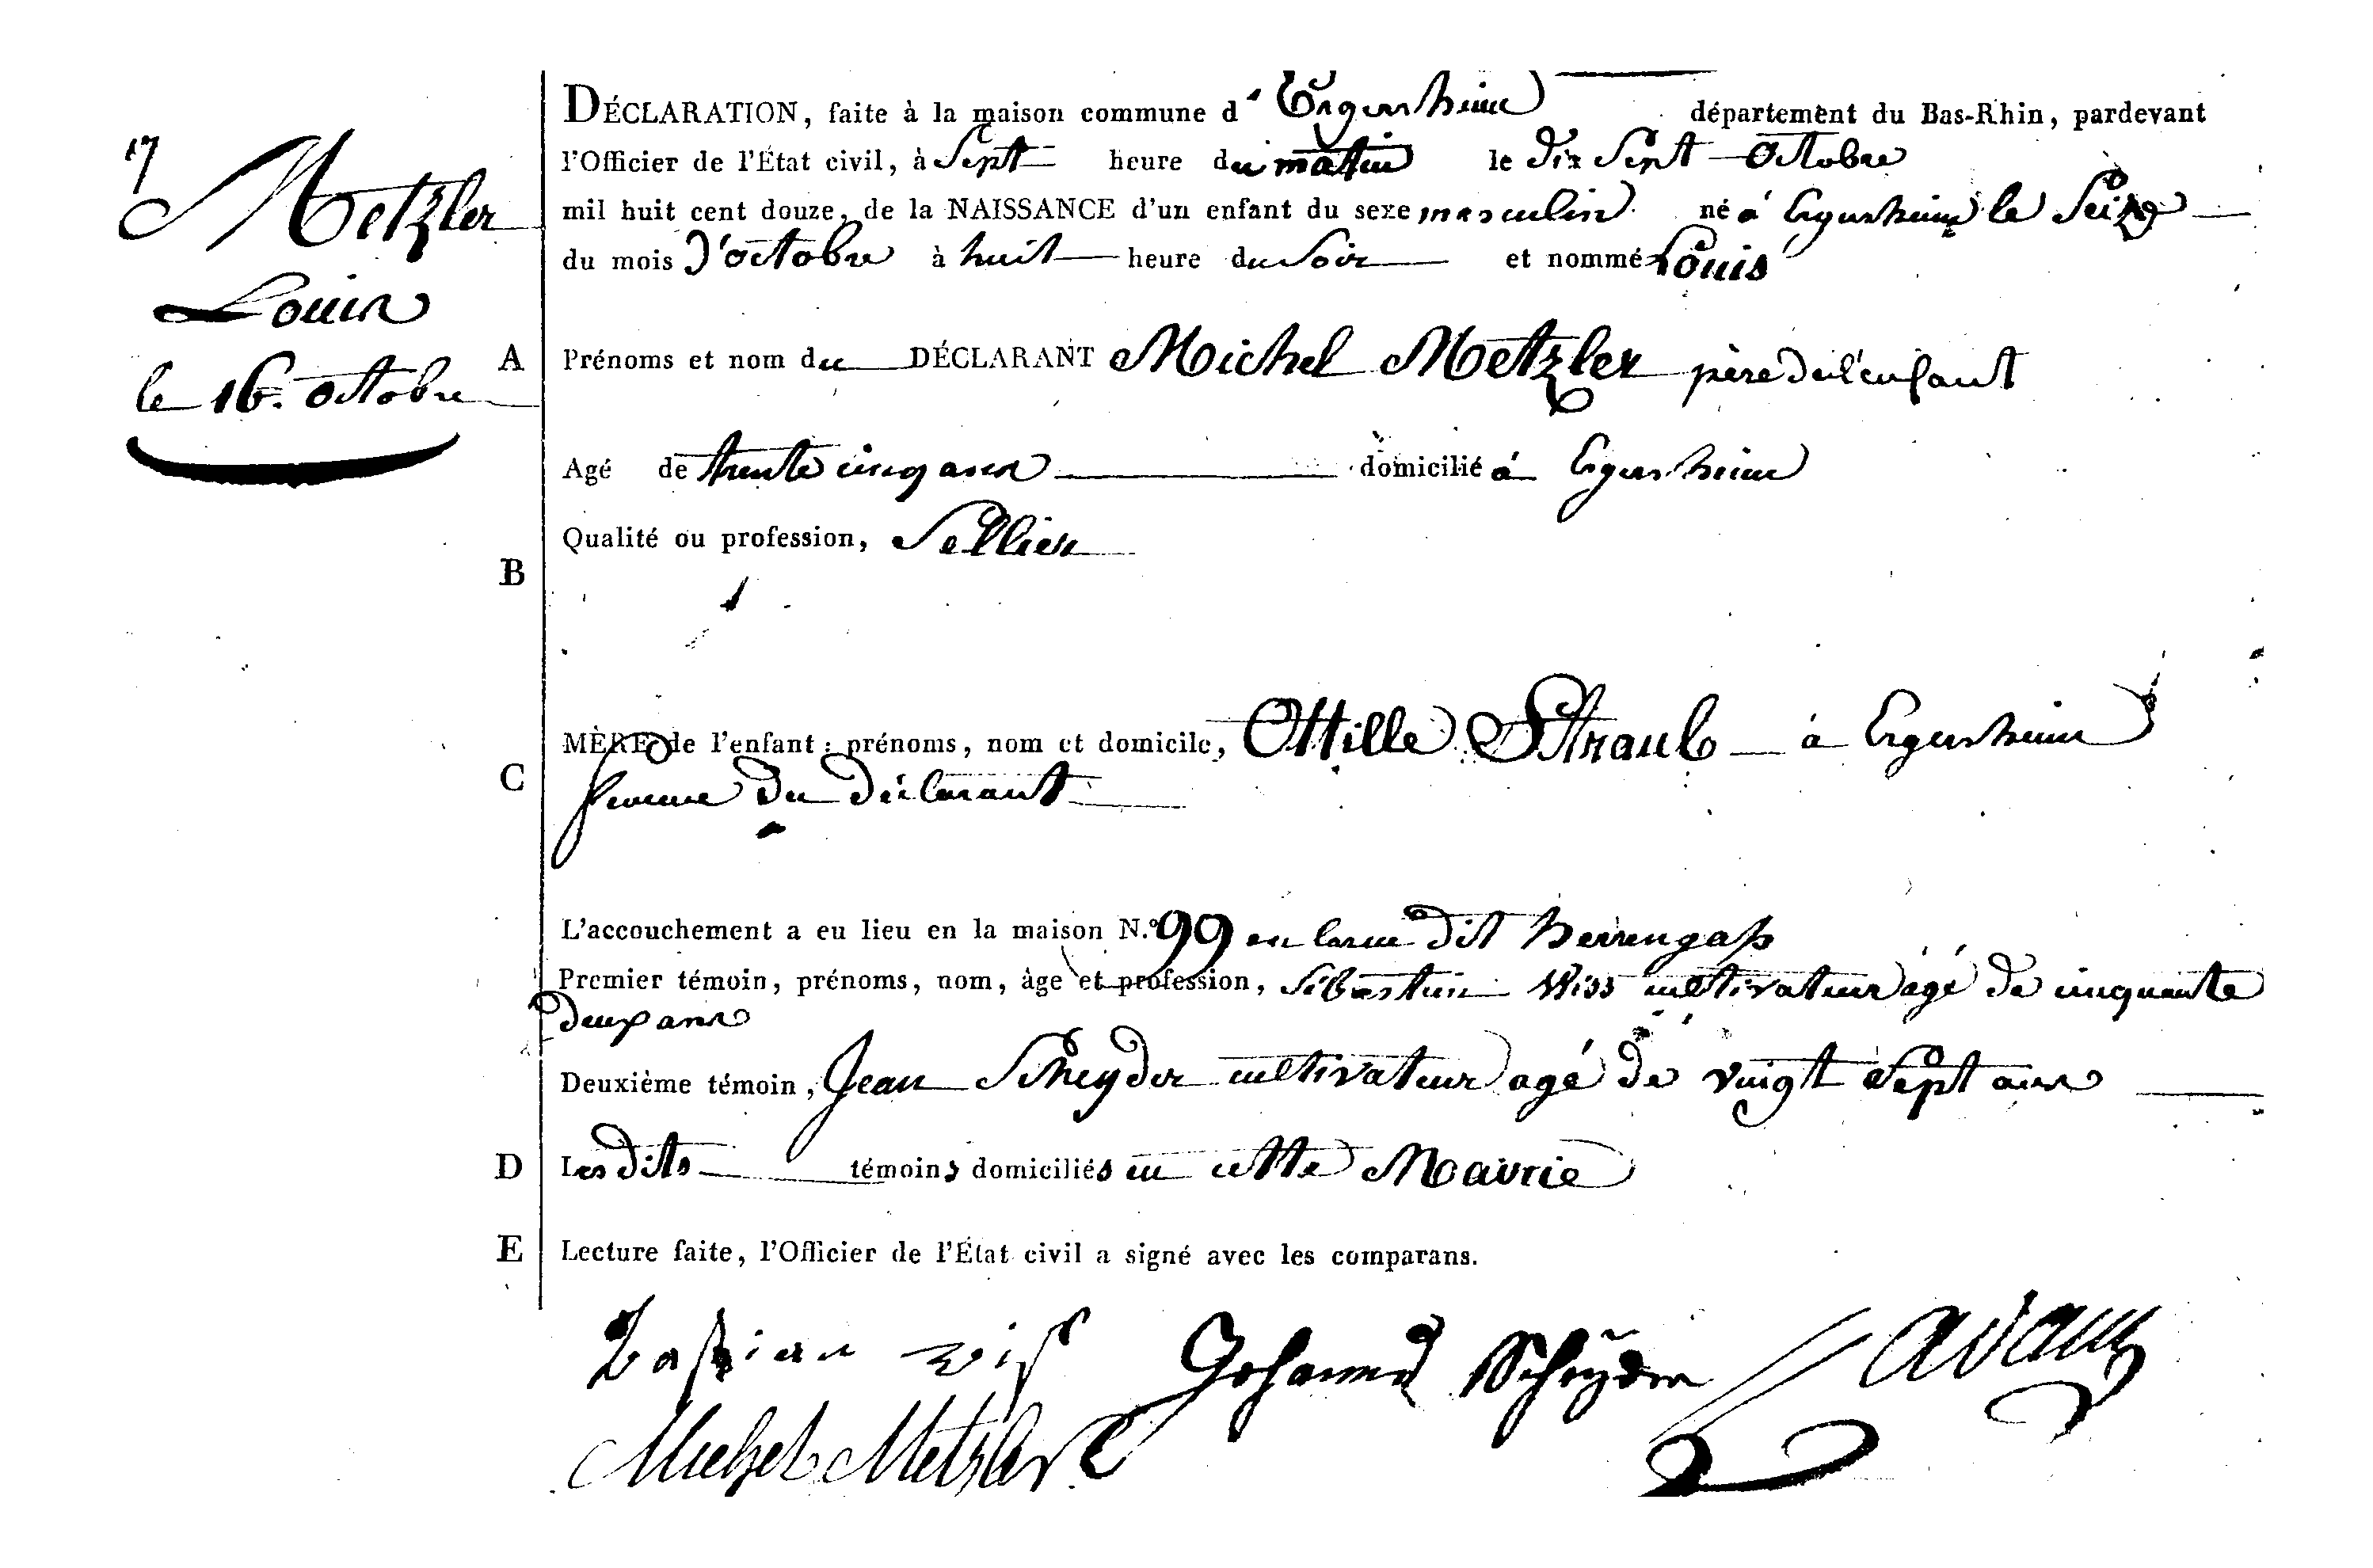 17
Metzler
Louis
le 16. octobre
DÉCLARATION, faite à la maison commune d'Ergersheim département du Bas-Rhin, pardevant
l'Officier de l'État civil, à Sept heure du matin le dix Sept Octobre
mil huit cent douze, de la NAISSANCE d'un enfant du sexe masculin né à Ergersheim le Seize
du mois d'octobre à huit heure du Soir et nommé Louis
A Prénoms et nom du DÉCLARANT Michel Metzler père de l'enfant
Agé de trente cinq ans domicilié à Ergersheim
Qualité ou profession, Sellier
B
MÈRE de l'enfant: prénoms, nom et domicile, Ottille Straub à Ergersheim
C femme du déclarant
L'accouchement a eu lieu en la maison N.° 99 en la rue dit herrengass
Premier témoin, prénoms, nom, âge et profession, Sébastien Wiss cultivateur agé de cinquante
deux ans
Deuxième témoin, Jean Scheyder cultivateur agé de vingt Sept ans
D Les dits témoins domiciliés en cette Mairie
E Lecture faite, l'Officier de l'État civil a signé avec les comparans.
Basian wiss Johannes Scheÿder
Michel Metzler